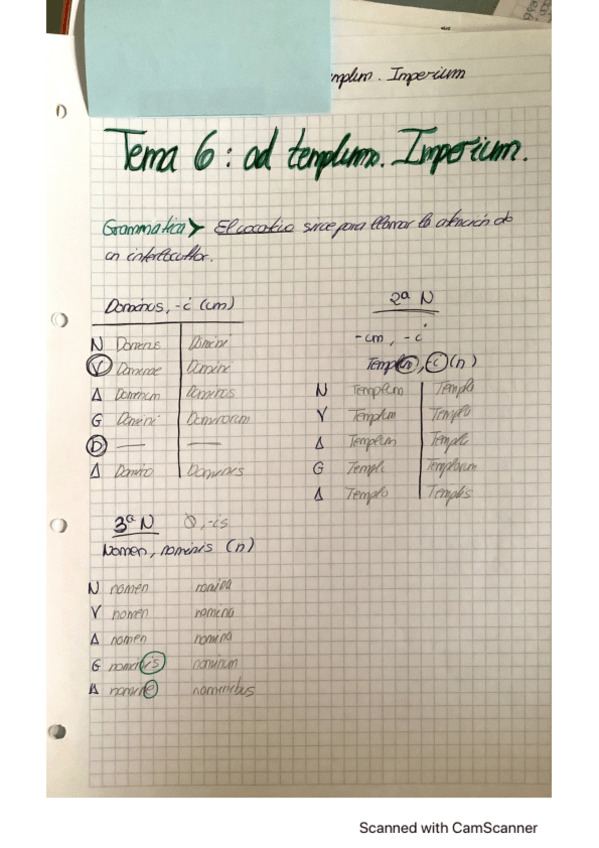 Imperium
Tema 6: ad templum. Imperium.
Grammatica > El vocativo sirve para llamar la atención de
un interlocutor.
Dominus, -i (m)
N Dominus Domini
V Domine Domini
A Dominum Dominos
G Domini Dominorum
D — —
A Domino Dominis
2ª N
-um, -i
Templum, -i (n)
N Templum Templa
V Templum Templa
A Templum Templa
G Templi Templorum
A Templo Templis
3ª N Ø, -is
Nomen, nominis (n)
N nomen nomina
V nomen nomina
A nomen nomina
G nominis nominum
A nomine nominibus
Scanned with CamScanner